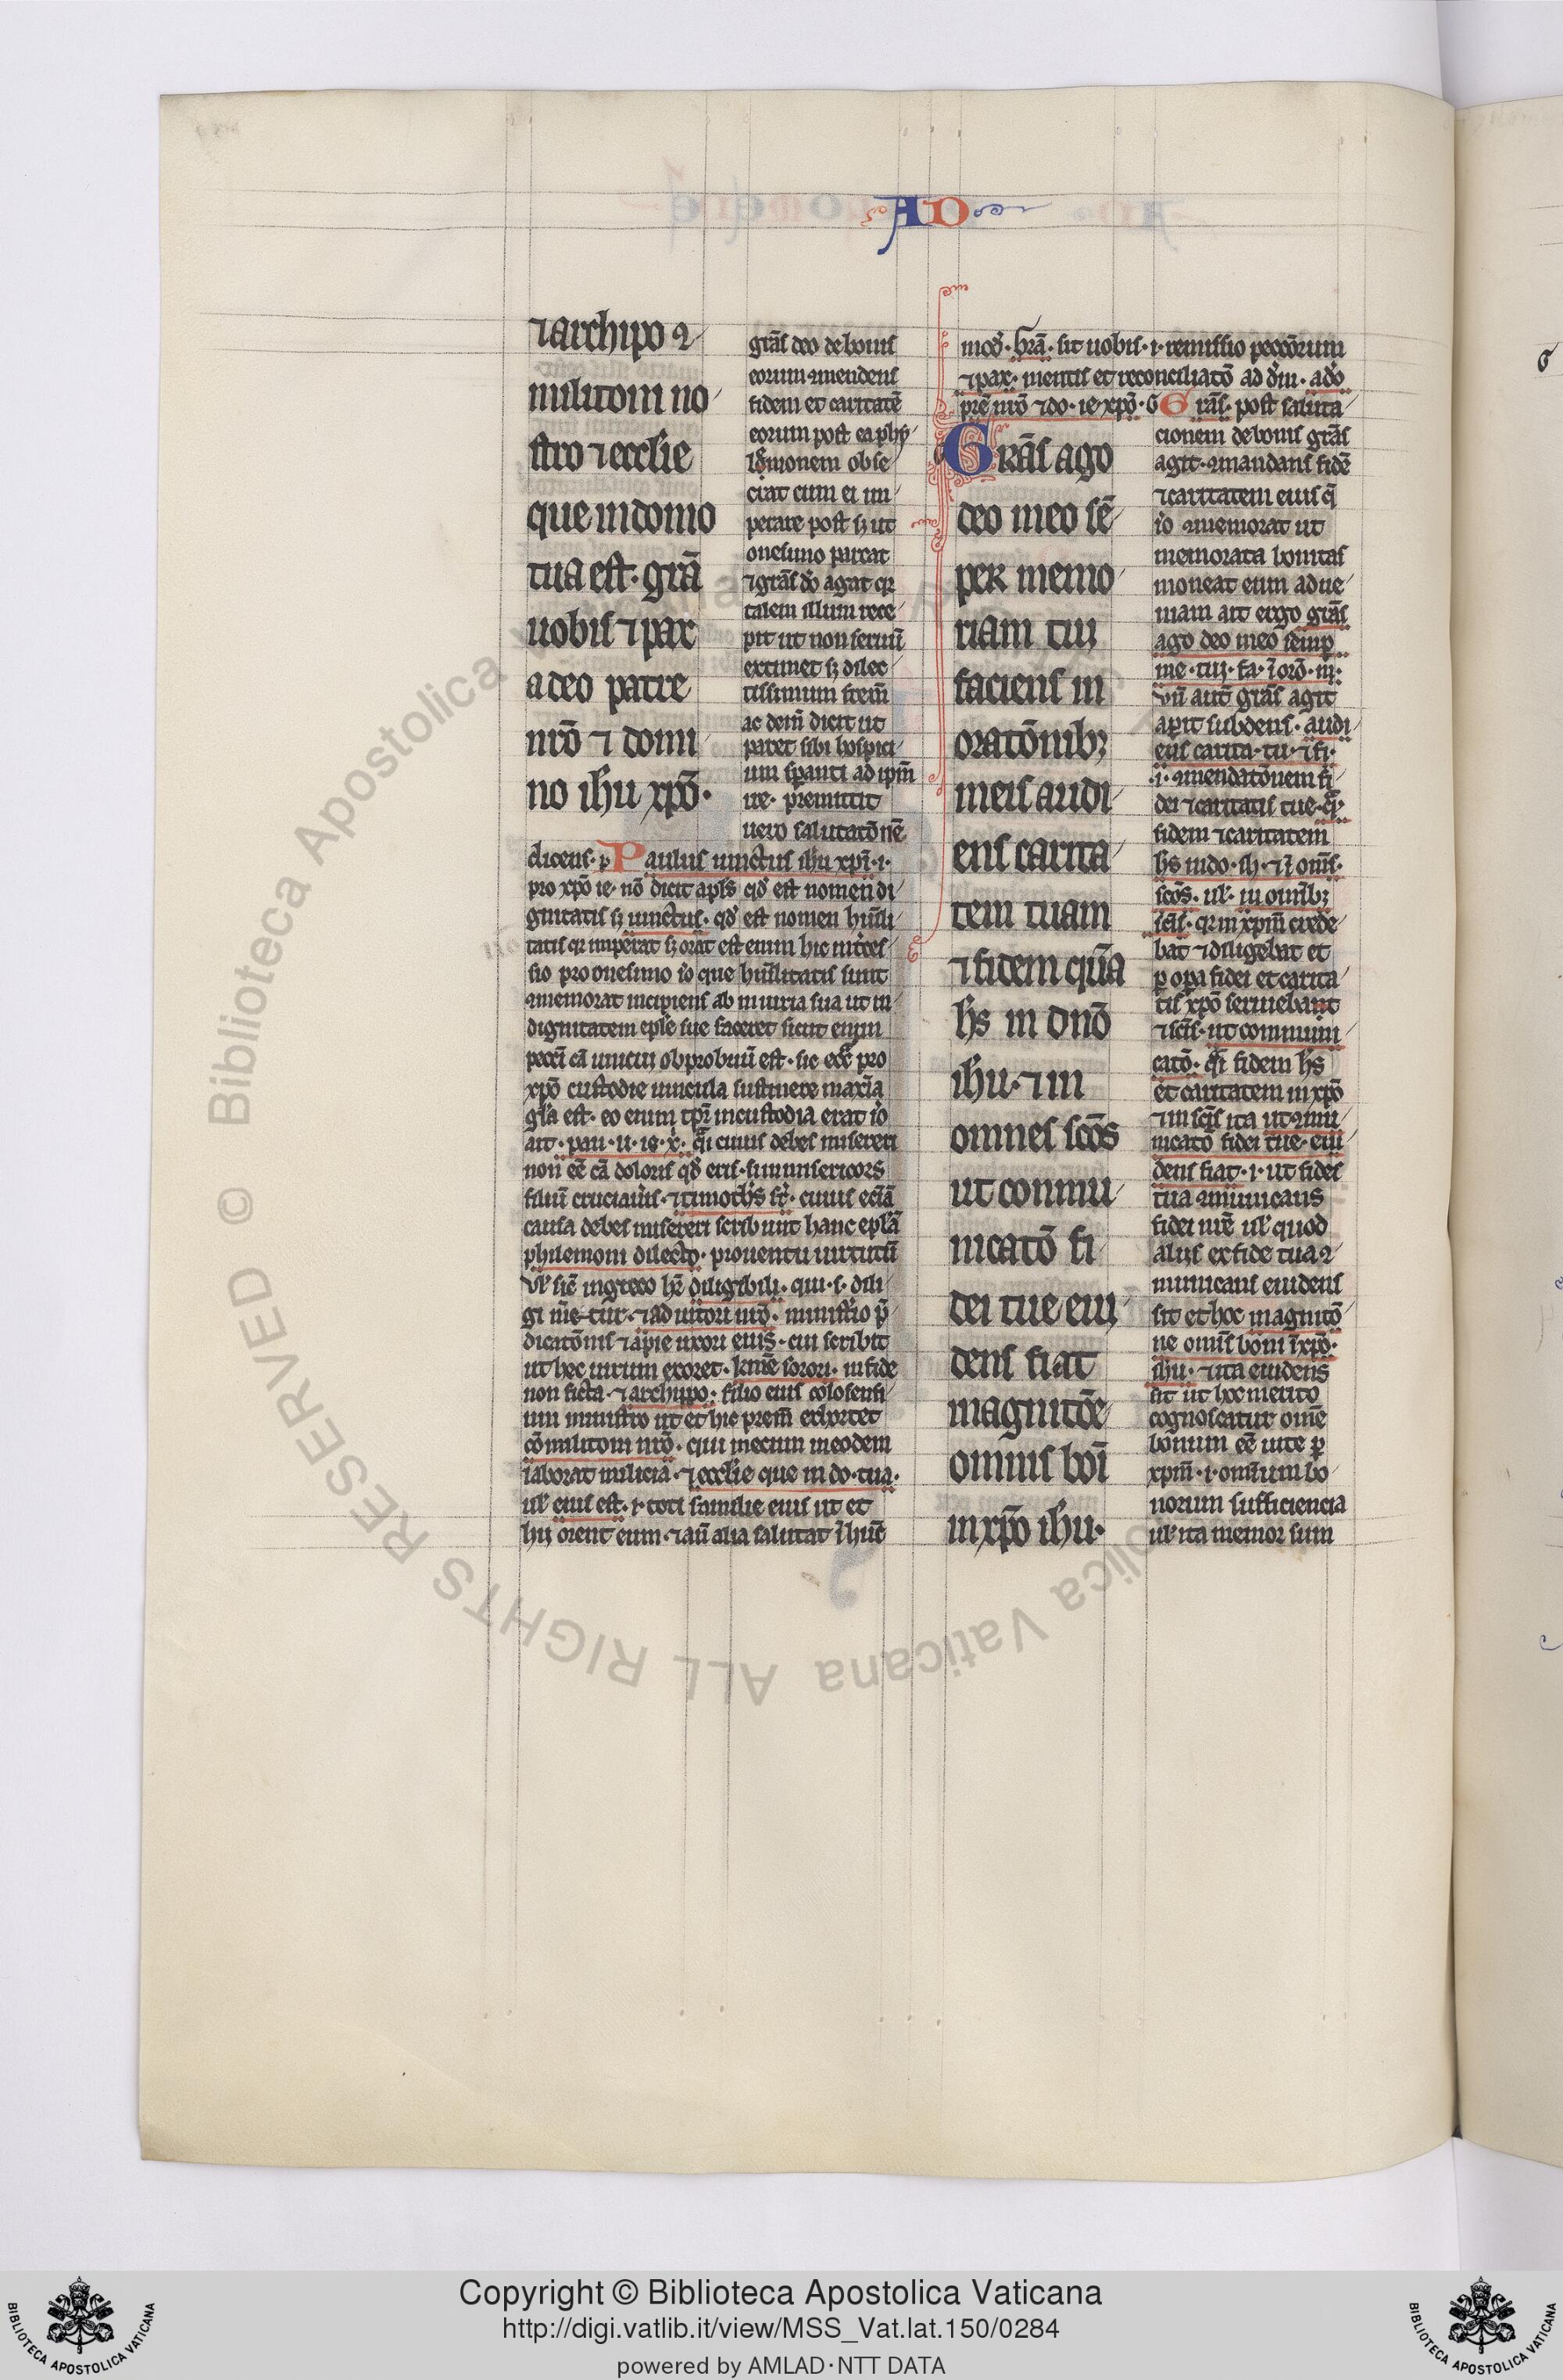 AD
⁊ archipo ꝯ
militoni no
stro ⁊ ecclie
que in domo
tua est. grā
uobis ⁊ pax
a deo patre
nrō ⁊ domi
no ihu xpō.
grās deo de bonis
eorum ꝯmendens
fidem et caritatē
eorum post ea phy
lemonem obse
crat cum ei im
perare posset ut
onesimo parcat
⁊ grās dō agat qr
talem illum rece
pit ut non seruū
extimet sꝫ dilec
tissimum frem̄
ac dem̄ dicit ut
paret sibi hospici
um spanti ad ipm̄
ire. premittit
uero salutatōnē
dicens. p Paulus uinctus ihu xpi. i.
pro xpō ie. nō dicit apl's qd' est nomen di
gnitatis sꝫ uinctus. qd' est nomen humili
tatis qr imperat sꝫ orat est enim hic int̄ces
sio pro onesimo io que humilitatis sunt
ꝯmemorat incipiens ab iniuria sua ut in
dignitatem epl'e sue faceret sicut enim
pecci cā uinciri obprobriū est. sic ecō pro
xpō custodie uincula sustinere maxīa
gl'a est. eo enim tpr in custodia erat io
ait. pau. u. is. x. q̄i cuius debes misereri
non eē cā doloris qd' eris. si inmisericors
filiū cruciauis. ⁊ timoth's fr. cuius eciā
causa debes misereri scribunt hanc epl'ā
philemoni dilecto. prouentu uirtutū
ul' sic in greco hr diligibili. qui. s. dili
gi me-tur. ⁊ adiutori nrō. ministro p
dicatōnis ⁊ apie uxori eius. cui scribit
ut hec uirum exoret. kme sorori. in fide
non ficta. ⁊ archipo. filio eius colosensi
um ministro ut et hic prem̄ exhortet
cōmilitoni nrō. qui mecum in eodem
laborat milicia. ⁊ ecclie que in do. tua.
ul' eius est. i. toti familie eius ut et
hij orent eum. ⁊ aū alia salutat
mod'. grā. sit uobis. i. remissio peccōrum
⁊ pax. mentis et reconciliatō ad dm̄. a dō
prē nrō ⁊ do. ie. xpō. G Grās. post saluta
Grās ago
deo meo sē
per memo
riam tui
faciens in
oratōnibꝫ
meis audi
ens carita
tem tuam
⁊ fidem quā
hs in dnō
ihu. ⁊ in
omnes scōs
ut commu
nicatō fi
dei tue eui
dens fiat
magnitōe
omnis boī
in xpō ihu.
cionem de bonis grās
agit. ꝯmandans fidē
⁊ caritatem eius q̄
io ꝯmemorat ut
memorata bonitas
moneat eum ad ue
niam ait ergo grās
ago deo meo semp
me. tui. fa. ī orō. m.
vn̄ aut̄ grās agit
aperit subdens. audi
ens carita. tu. ⁊ fi.
.i. ꝯmendatōnem fi
dei ⁊ caritatis tue. q̄
fidem ⁊ caritatem
hs in do. ih. ⁊ ī omīs.
scōs. ul'. in omībꝫ
scīs. qr in xpm̄ crede
bat ⁊ diligebat et
p opa fidei et carita
tis xpō seruiebant
⁊ scīs. ut communi
catō. q̄i fidem hs
et caritatem in xpō
⁊ in scīs ita ut ꝯmu
nicatō fidei tue. eui
dens fiat. i. ut fides
tua ꝯmunicans
fidei me ul' quod
alijs ex fide tua ꝯ
municans euidens
sit et hoc magnitō
ne omīs boni ī xpō.
ihu. ⁊ ita euidens
sit ut hoc merito
cognoscatur omē
bonum eē in te p
xpm̄. i. omīum bo
norum sufficiencia
ul' ita memor sum
© Biblioteca Apostolica Vaticana ALL RIGHTS RESERVED
Copyright © Biblioteca Apostolica Vaticana
http://digi.vatlib.it/view/MSS_Vat.lat.150/0284
powered by AMLAD·NTT DATA
BIBLIOTECA APOSTOLICA VATICANA
BIBLIOTECA APOSTOLICA VATICANA